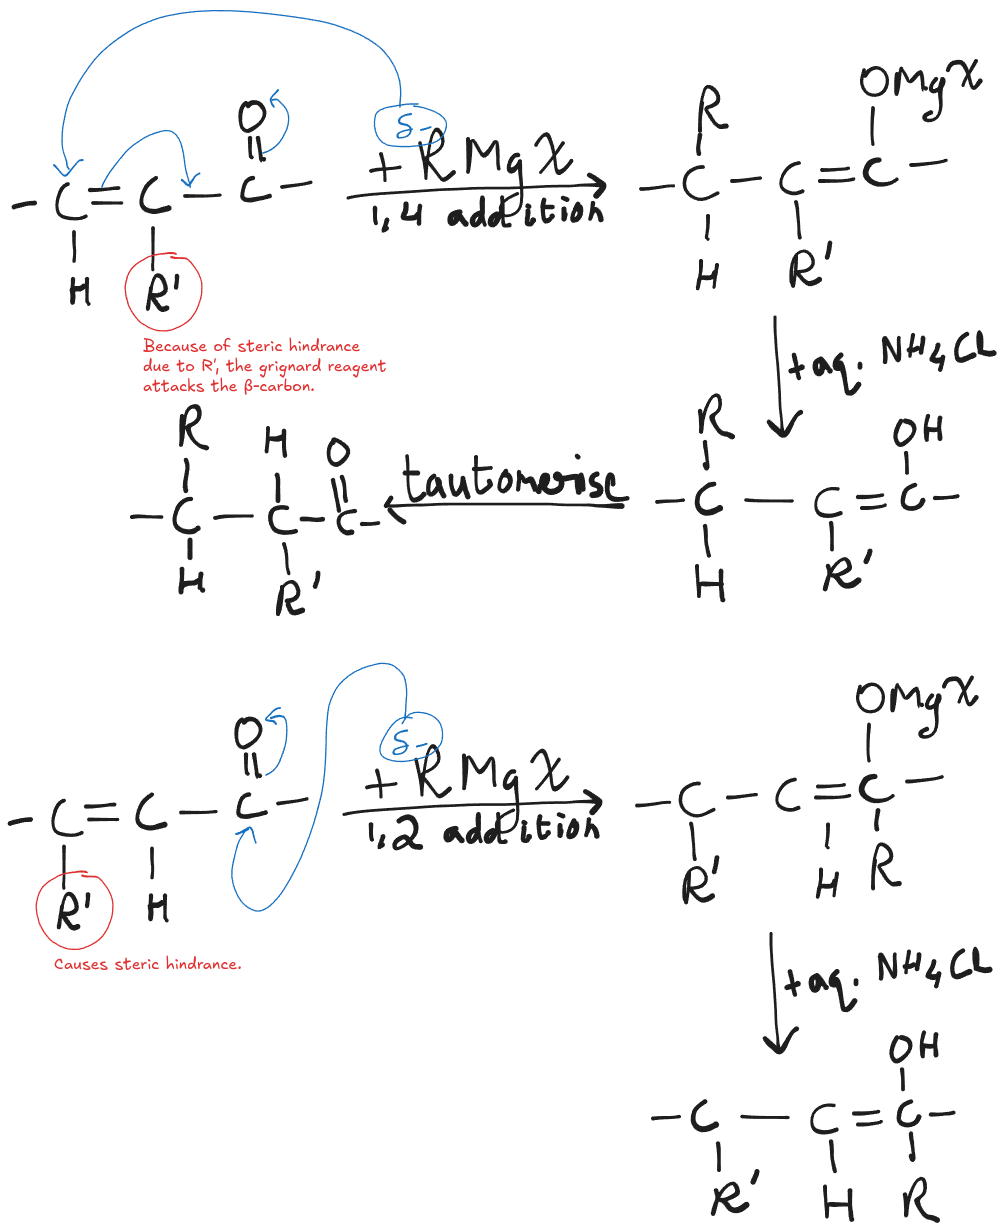 O
δ-
+ R Mg X
- C = C - C -
1,4 addition
H
R'
Because of steric hindrance
due to R', the grignard reagent
attacks the β-carbon.
R
OMgX
- C - C = C -
H
R'
+ aq. NH4Cl
R
OH
- C - C = C -
H
R'
tautomerise
R
H
O
- C - C - C -
H
R'
O
δ-
+ R Mg X
- C = C - C -
1,2 addition
R'
H
Causes steric hindrance.
OMgX
- C - C = C -
R'
H
R
+ aq. NH4Cl
OH
- C - C = C -
R'
H
R